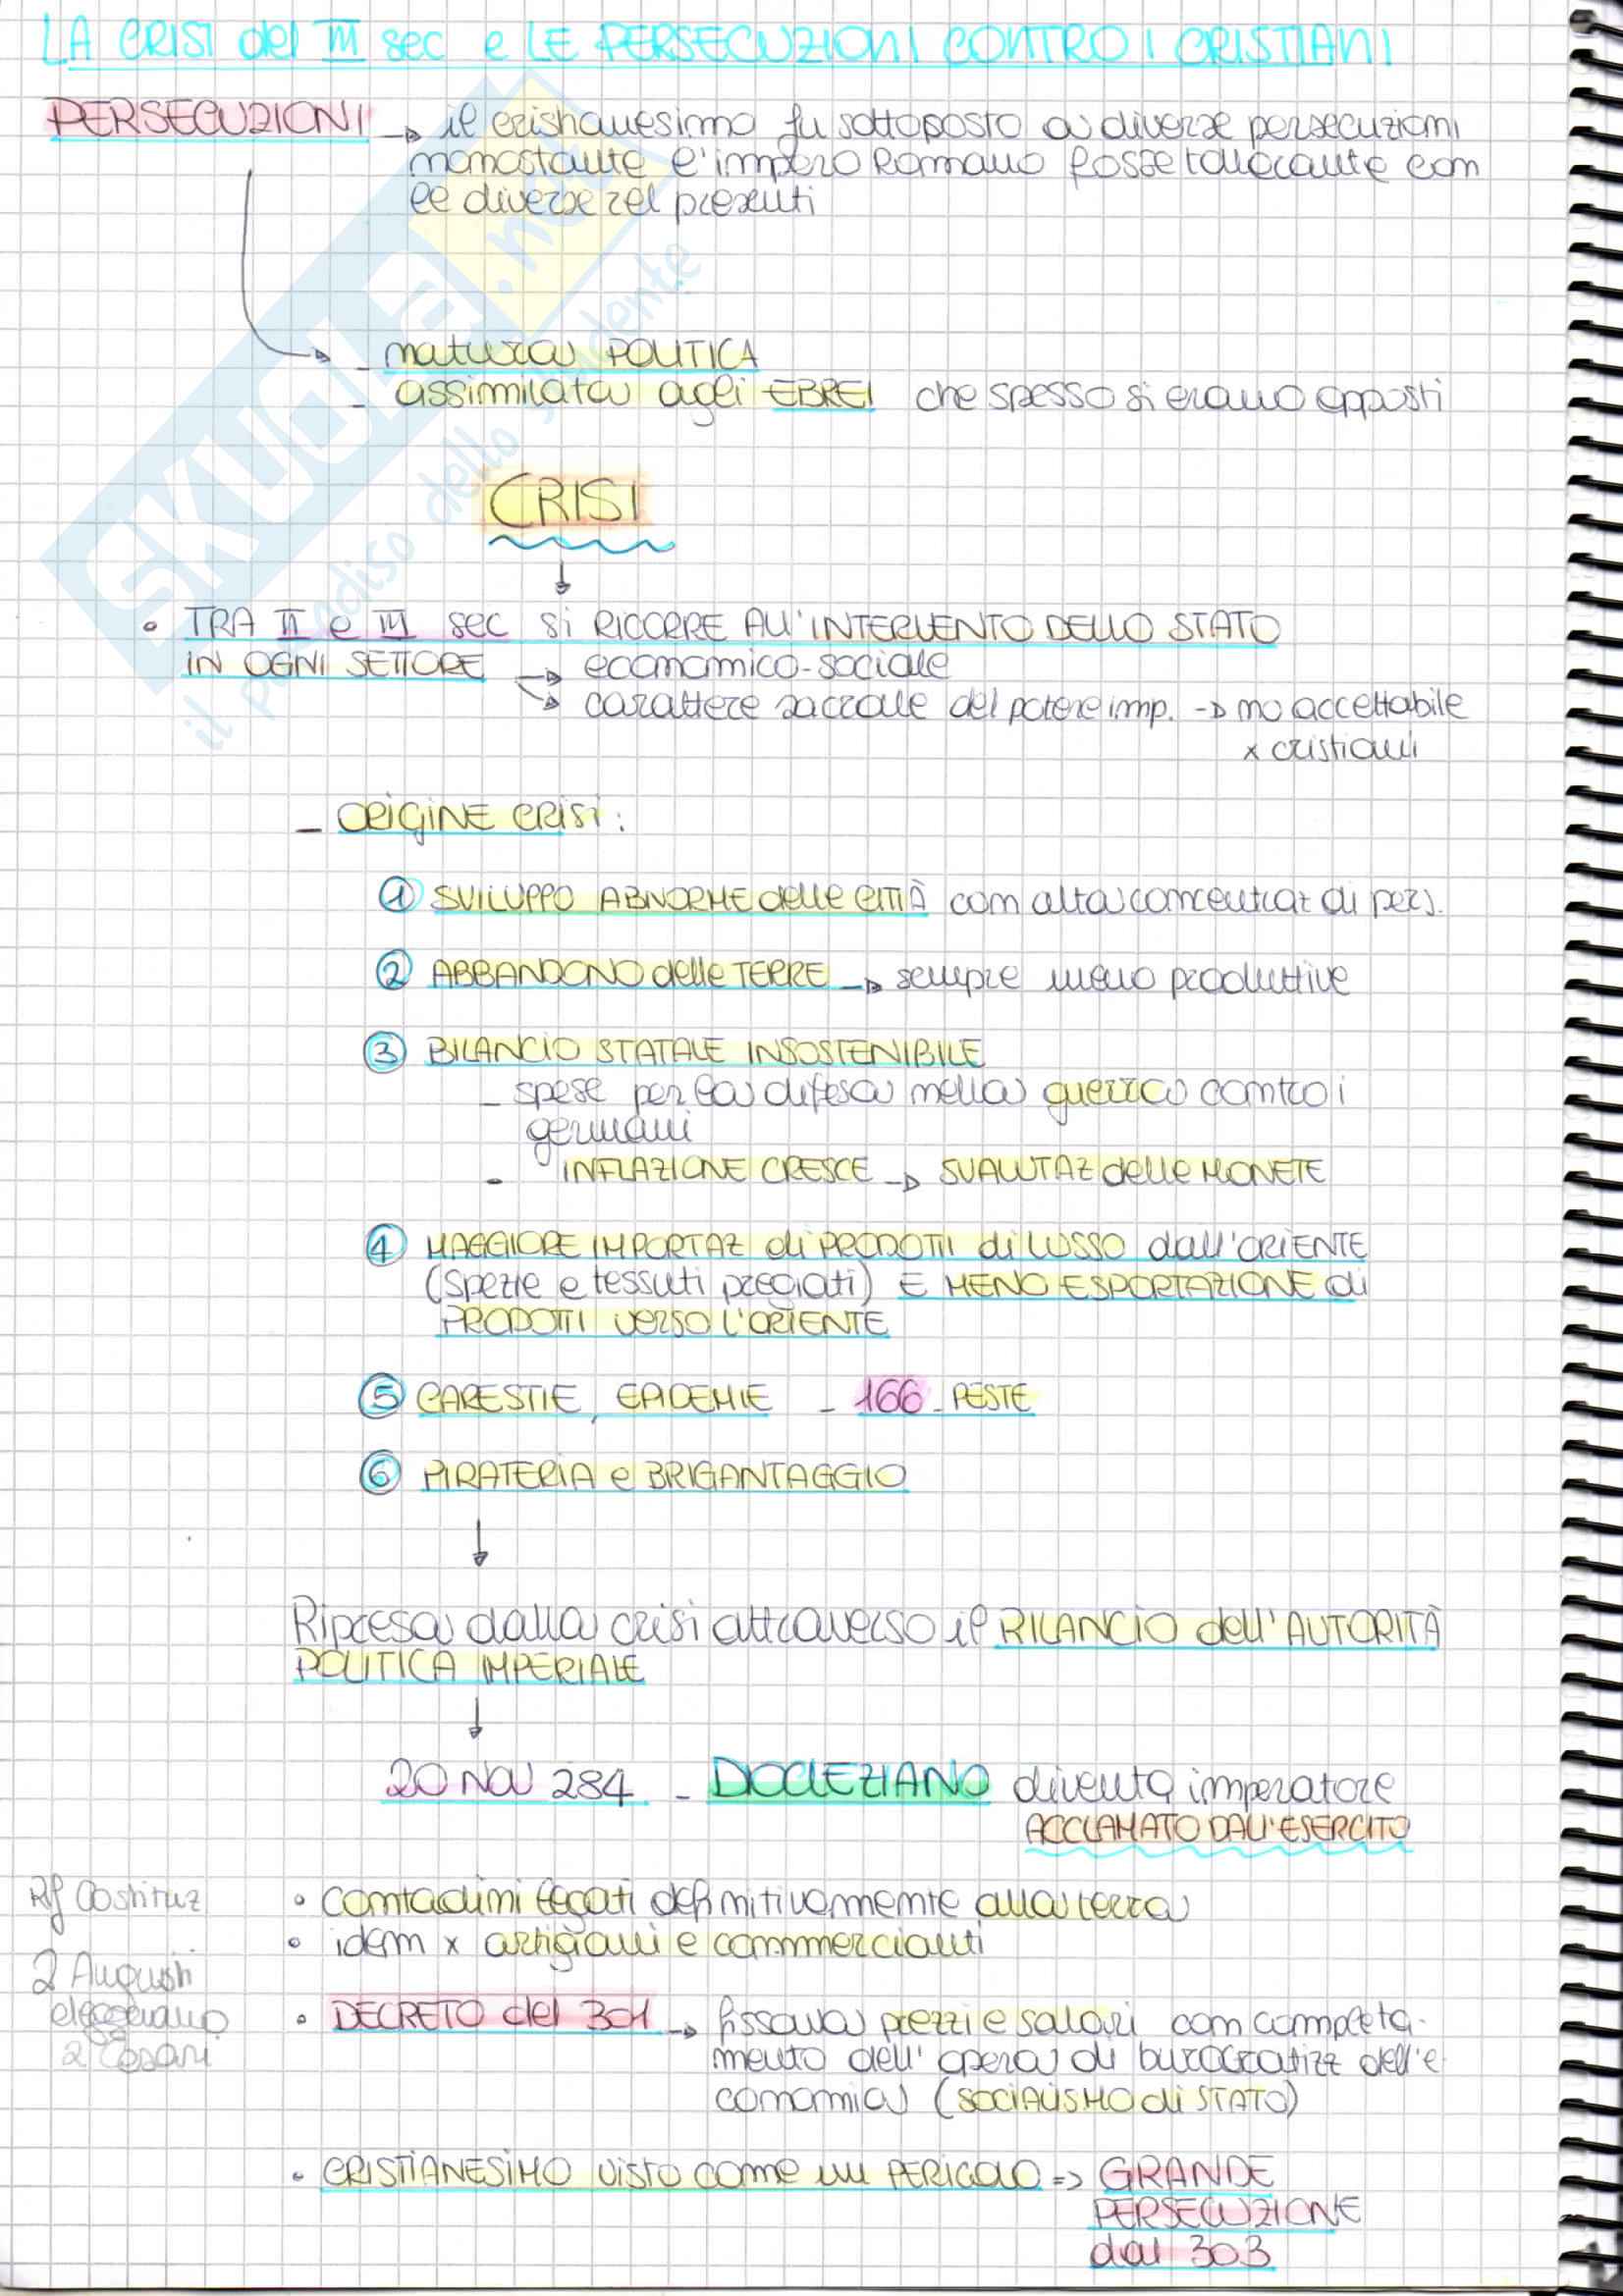 LA CRISI del III sec e LE PERSECUZIONI CONTRO I CRISTIANI
PERSECUZIONI → il cristianesimo fu sottoposto a diverse persecuzioni
nonostante l'impero Romano fosse tollerante con
le diverse rel presenti
- natura POLITICA
- assimilata agli EBREI che spesso si erano opposti
CRISI
• TRA II e III sec si RICORRE ALL'INTERVENTO DELLO STATO
IN OGNI SETTORE → economico-sociale
→ carattere sacrale del potere imp. → no accettabile
x cristiani
- ORIGINE CRISI:
1 SVILUPPO ABNORME delle CITTÀ con alta concentraz di pers.
2 ABBANDONO delle TERRE → sempre meno produttive
3 BILANCIO STATALE INSOSTENIBILE
- spese per la difesa nella guerra contro i
germani
- INFLAZIONE CRESCE → SVALUTAZ delle MONETE
4 MAGGIORE IMPORTAZ di PRODOTTI di LUSSO dall'ORIENTE
(spezie e tessuti pregiati) E MENO ESPORTAZIONE di
PRODOTTI VERSO L'ORIENTE
5 CARESTIE, EPIDEMIE - 166 - PESTE
6 PIRATERIA e BRIGANTAGGIO
Ripresa dalla crisi attraverso il RILANCIO dell'AUTORITÀ
POLITICA IMPERIALE
20 NOV 284 - DIOCLEZIANO diventa imperatore
ACCLAMATO DALL'ESERCITO
Rif Costituz
• contadini legati definitivamente alla terra
• idem x artigiani e commercianti
2 Augusti
eleggevano
2 Cesari
• DECRETO del 301 → fissava prezzi e salari con completa-
mento dell'opera di burocratizz dell'e-
conomia (SOCIALISMO di STATO)
• CRISTIANESIMO visto come un PERICOLO => GRANDE
PERSECUZIONE
dal 303
SKUOLA.net
il paradiso dello studente